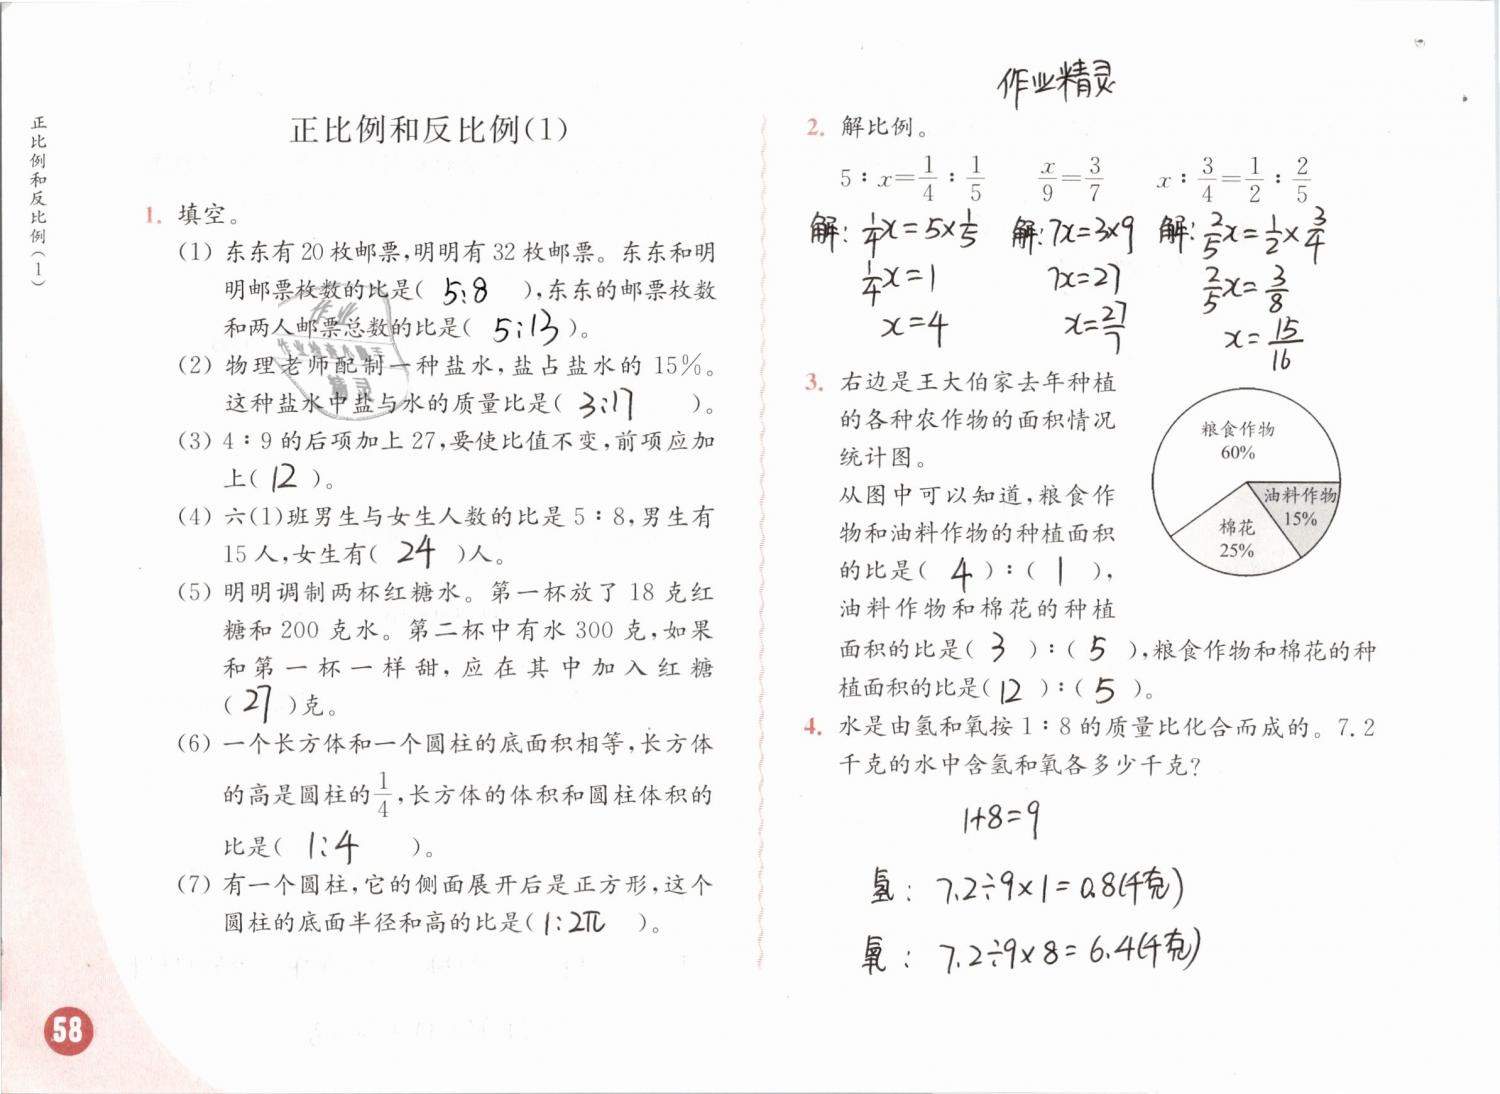 作业精灵
正比例和反比例(1)
正比例和反比例(1)
1. 填空。
(1) 东东有 20 枚邮票,明明有 32 枚邮票。东东和明
明邮票枚数的比是( 5:8 ),东东的邮票枚数
和两人邮票总数的比是( 5:13 )。
(2) 物理老师配制一种盐水,盐占盐水的 15%。
这种盐水中盐与水的质量比是( 3:17 )。
(3) 4∶9 的后项加上 27,要使比值不变,前项应加
上( 12 )。
(4) 六(1)班男生与女生人数的比是 5∶8,男生有
15 人,女生有( 24 )人。
(5) 明明调制两杯红糖水。第一杯放了 18 克红
糖和 200 克水。第二杯中有水 300 克,如果
和第一杯一样甜,应在其中加入红糖
( 27 )克。
(6) 一个长方体和一个圆柱的底面积相等,长方体
的高是圆柱的1/4,长方体的体积和圆柱体积的
比是( 1:4 )。
(7) 有一个圆柱,它的侧面展开后是正方形,这个
圆柱的底面半径和高的比是( 1:2π )。
58
2. 解比例。
5∶x=1/4∶1/5 x/9=3/7 x∶3/4=1/2∶2/5
解: 1/4x=5×1/5 解: 7x=3×9 解: 2/5x=1/2×3/4
1/4x=1 7x=27 2/5x=3/8
x=4 x=27/7 x=15/16
3. 右边是王大伯家去年种植
的各种农作物的面积情况
统计图。
从图中可以知道,粮食作
物和油料作物的种植面积
的比是( 4 )∶( 1 ),
油料作物和棉花的种植
面积的比是( 3 )∶( 5 ),粮食作物和棉花的种
植面积的比是( 12 )∶( 5 )。
粮食作物
60%
油料作物
15%
棉花
25%
4. 水是由氢和氧按 1∶8 的质量比化合而成的。7.2
千克的水中含氢和氧各多少千克?
1+8=9
氢: 7.2÷9×1=0.8(千克)
氧: 7.2÷9×8=6.4(千克)